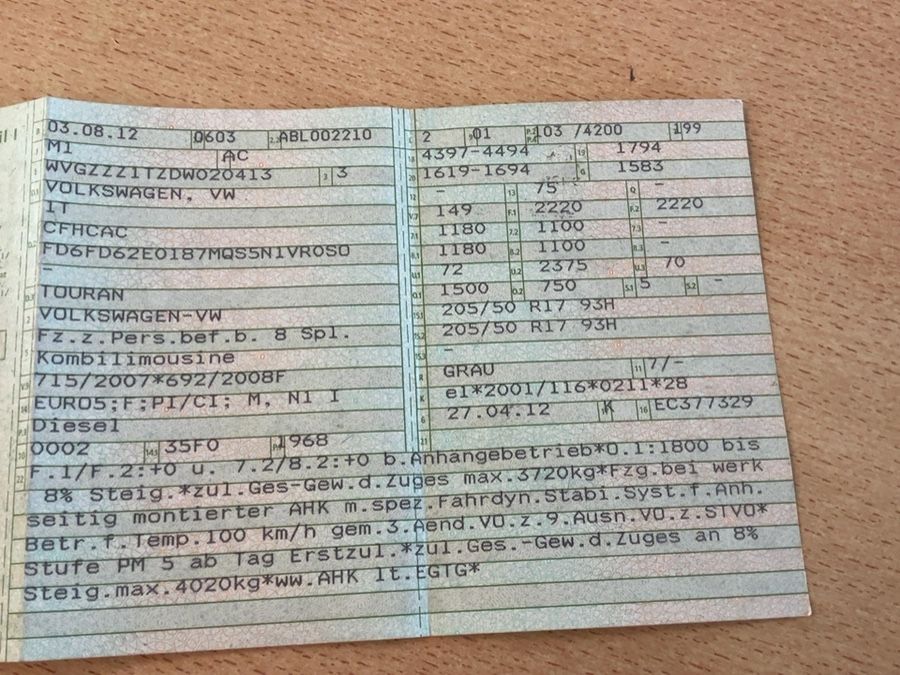 03.08.12 0603 ABL002210
M1 AC
WVGZZZ1TZDW020413 3
VOLKSWAGEN, VW
1T
CFHCAC
FD6FD62E0187MQS5N1VR0S0
-
TOURAN
VOLKSWAGEN-VW
Fz.z.Pers.bef.b. 8 Spl.
Kombilimousine
715/2007*692/2008F
EURO5;F;PI/CI; M, N1 I
Diesel
0002 35F0 1968
2 01 103 /4200 199
4397-4494 1794
1619-1694 1583
- 75 -
149 2220 2220
1180 1100 -
1180 1100 -
72 2375 70
1500 750 5 -
205/50 R17 93H
205/50 R17 93H
-
GRAU 7/-
e1*2001/116*0211*28
27.04.12 K EC377329
F.1/F.2:+0 u. 7.2/8.2:+0 b.Anhangebetrieb*O.1:1800 bis
8% Steig.*zul.Ges-Gew.d.Zuges max.3720kg*Fzg.bei werk
seitig montierter AHK m.spez.Fahrdyn.Stabi.Syst.f.Anh.
Betr.f.Temp.100 km/h gem.3.Aend.VO.z.9.Ausn.VO.z.STVO*
Stufe PM 5 ab Tag Erstzul.*zul.Ges.-Gew.d.Zuges an 8%
Steig.max.4020kg*ww.AHK lt.EGTG*